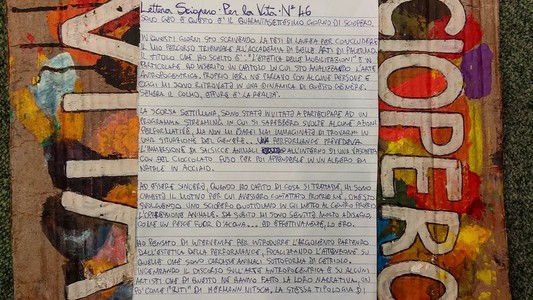 Lettera Sciopero Per la Vita N° 46
SONO GEO E QUESTO È IL QUARANTASETTESIMO GIORNO DI SCIOPERO.
IN QUESTI GIORNI STO SCRIVENDO LA TESI DI LAUREA PER CONCLUDERE
IL MIO PERCORSO TRIENNALE ALL'ACCADEMIA DI BELLE ARTI DI PALERMO.
IL TITOLO CHE HO SCELTO È: "L'ESTETICA DELLE MOBILITAZIONI" E IN
PARTICOLARE HO INSERITO UN CAPITOLO IN CUI STO ANALIZZANDO L'ARTE
ANTROPOCENTRICA. PROPRIO IERI NE PARLAVO CON ALCUNE PERSONE E
OGGI MI SONO RITROVATA IN UNA DINAMICA DI QUESTO GENERE.
SEMBRA IL COLMO, EPPURE È LA REALTÀ.
LA SCORSA SETTIMANA, SONO STATA INVITATA A PARTECIPARE AD UN
PROGRAMMA STREAMING IN CUI SI SAREBBERO SVOLTE ALCUNE AZIONI
PERFORMATIVE, MA NON MI SAREI MAI IMMAGINATA DI TROVARMI IN
UNA SITUAZIONE DEL GENERE... UNA PERFORMANCE PREVEDEVA
L'IMMERSIONE DI SALSICCE ANIMALI ALL'INTERNO DI UNA
CON DEL CIOCCOLATO FUSO PER POI APPENDERLE IN UN ALBERO DI
NATALE IN ACCIAIO.
AD ESSERE SINCERA, QUANDO HO CAPITO DI COSA SI TRATTASSE, MI SONO
CHIESTA IL MOTIVO PER CUI AVESSERO CONTATTATO PROPRIO ME, CHE STO
SVOLGENDO UNO SCIOPERO QUOTIDIANO IN CUI METTO AL CENTRO PROPRIO
L'OPPRESSIONE ANIMALE. DA SUBITO MI SONO SENTITA MOLTO A DISAGIO,
COME UN PESCE FUOR D'ACQUA... ED EFFETTIVAMENTE, LO ERO.
HO PENSATO DI INTERVENIRE PER INTRODURRE L'ARGOMENTO PARTENDO
DALL'ESTETICA DELLA PERFORMANCE, FOCALIZZANDO L'ATTENZIONE SU
QUELLE CHE SONO CARCASSE ANIMALI SOTTOFORMA DI
INCENTRANDO IL DISCORSO SULL'ARTE ANTROPOCENTRICA E SU ALCUNI
ARTISTI CHE DI QUESTO NE HANNO FATTO LA LORO NARRATIVA, UN
PO' COME I "RITI" DI HERMANN NITSCH. LA STESSA TIPOLOGIA DI
VITA
SCIOPERO